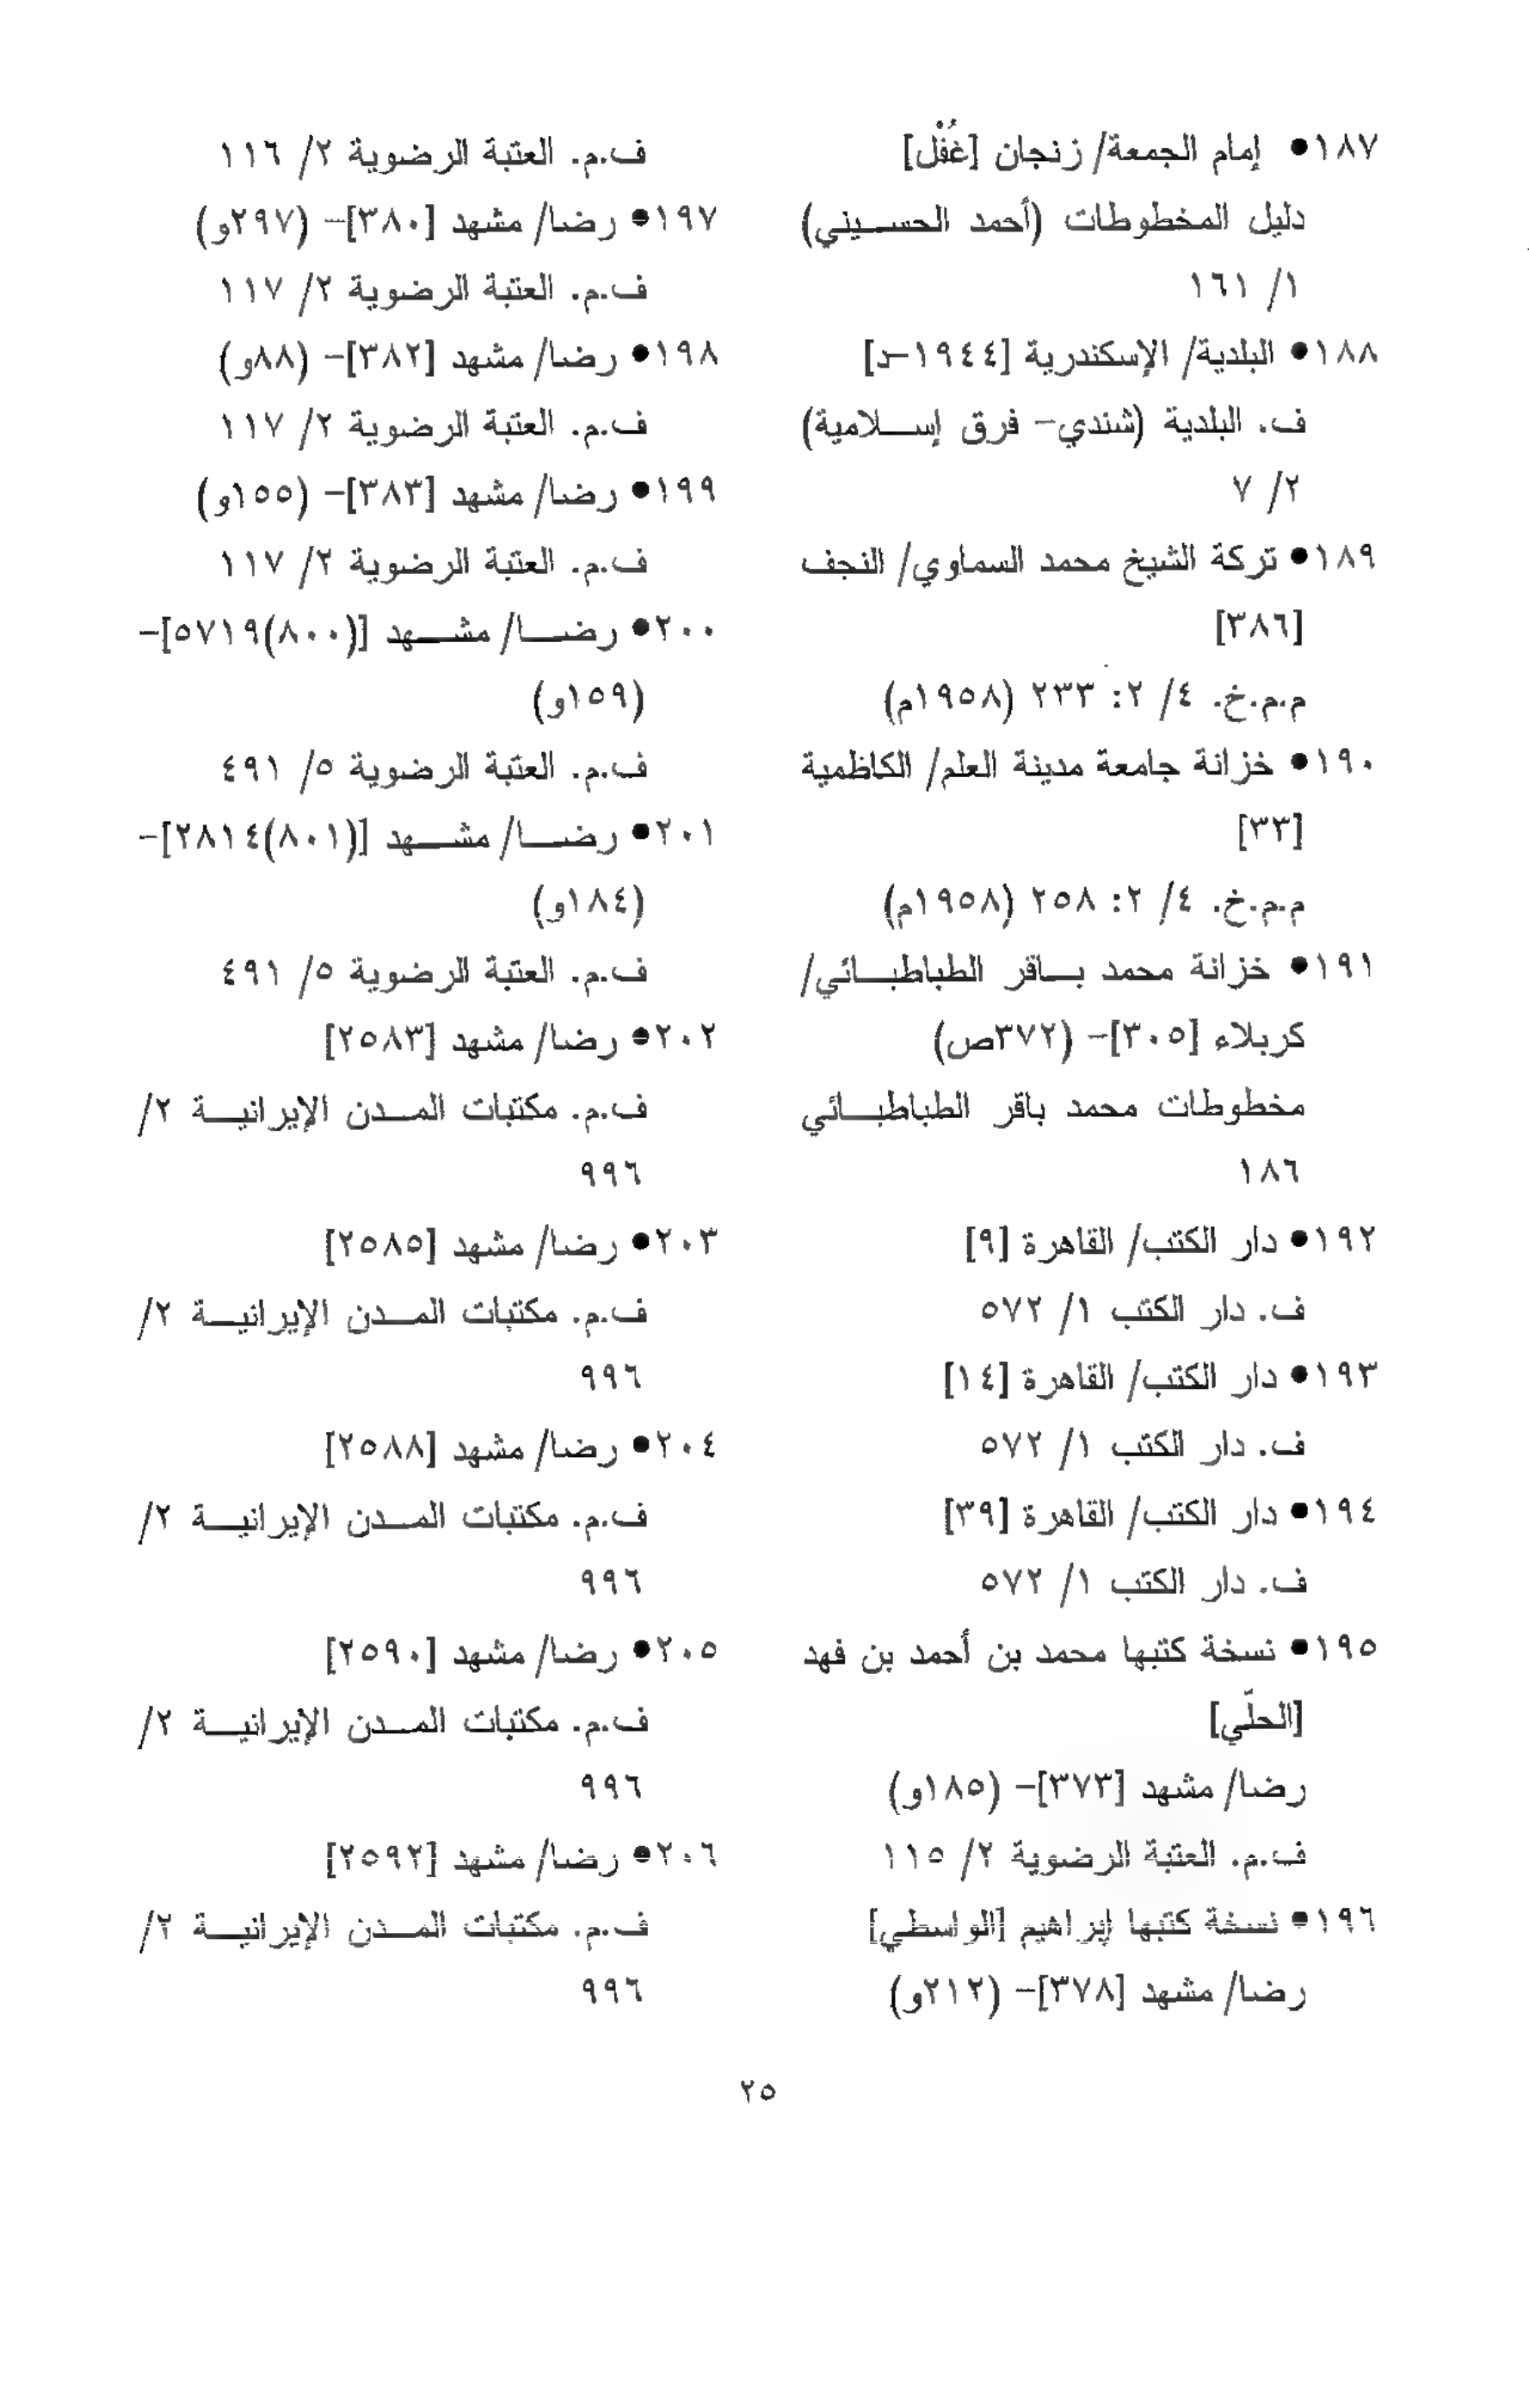 ١٨٧• إمام الجمعة/ زنجان [غُفْل]
دليل المخطوطات (أحمد الحسيني)
١/ ١٦١
١٨٨• البلدية/ الإسكندرية [١٩٤٤-د]
ف. البلدية (شندي- فرق إسلامية)
٢/ ٧
١٨٩• تركة الشيخ محمد السماوي/ النجف
[٣٨٦]
م.م.خ. ٤/ ٢: ٢٣٣ (١٩٥٨م)
١٩٠• خزانة جامعة مدينة العلم/ الكاظمية
[٣٣]
م.م.خ. ٤/ ٢: ٢٥٨ (١٩٥٨م)
١٩١• خزانة محمد باقر الطباطبائي/
كربلاء [٣٠٥]- (٣٧٢ص)
مخطوطات محمد باقر الطباطبائي
١٨٦
١٩٢• دار الكتب/ القاهرة [٩]
ف. دار الكتب ١/ ٥٧٢
١٩٣• دار الكتب/ القاهرة [١٤]
ف. دار الكتب ١/ ٥٧٢
١٩٤• دار الكتب/ القاهرة [٣٩]
ف. دار الكتب ١/ ٥٧٢
١٩٥• نسخة كتبها محمد بن أحمد بن فهد
[الحلّي]
رضا/ مشهد [٣٧٣]- (١٨٥و)
ف.م. العتبة الرضوية ٢/ ١١٥
١٩٦• نسخة كتبها إبراهيم [الواسطي]
رضا/ مشهد [٣٧٨]- (٢١٢و)
ف.م. العتبة الرضوية ٢/ ١١٦
١٩٧• رضا/ مشهد [٣٨٠]- (٢٩٧و)
ف.م. العتبة الرضوية ٢/ ١١٧
١٩٨• رضا/ مشهد [٣٨٢]- (٨٨و)
ف.م. العتبة الرضوية ٢/ ١١٧
١٩٩• رضا/ مشهد [٣٨٣]- (١٥٥و)
ف.م. العتبة الرضوية ٢/ ١١٧
٢٠٠• رضا/ مشهد [(٨٠٠)٥٧١٩]-
(١٥٩و)
ف.م. العتبة الرضوية ٥/ ٤٩١
٢٠١• رضا/ مشهد [(٨٠١)٢٨١٤]-
(١٨٤و)
ف.م. العتبة الرضوية ٥/ ٤٩١
٢٠٢• رضا/ مشهد [٢٥٨٣]
ف.م. مكتبات المدن الإيرانية ٢/
٩٩٦
٢٠٣• رضا/ مشهد [٢٥٨٥]
ف.م. مكتبات المدن الإيرانية ٢/
٩٩٦
٢٠٤• رضا/ مشهد [٢٥٨٨]
ف.م. مكتبات المدن الإيرانية ٢/
٩٩٦
٢٠٥• رضا/ مشهد [٢٥٩٠]
ف.م. مكتبات المدن الإيرانية ٢/
٩٩٦
٢٠٦• رضا/ مشهد [٢٥٩٢]
ف.م. مكتبات المدن الإيرانية ٢/
٩٩٦
٢٥